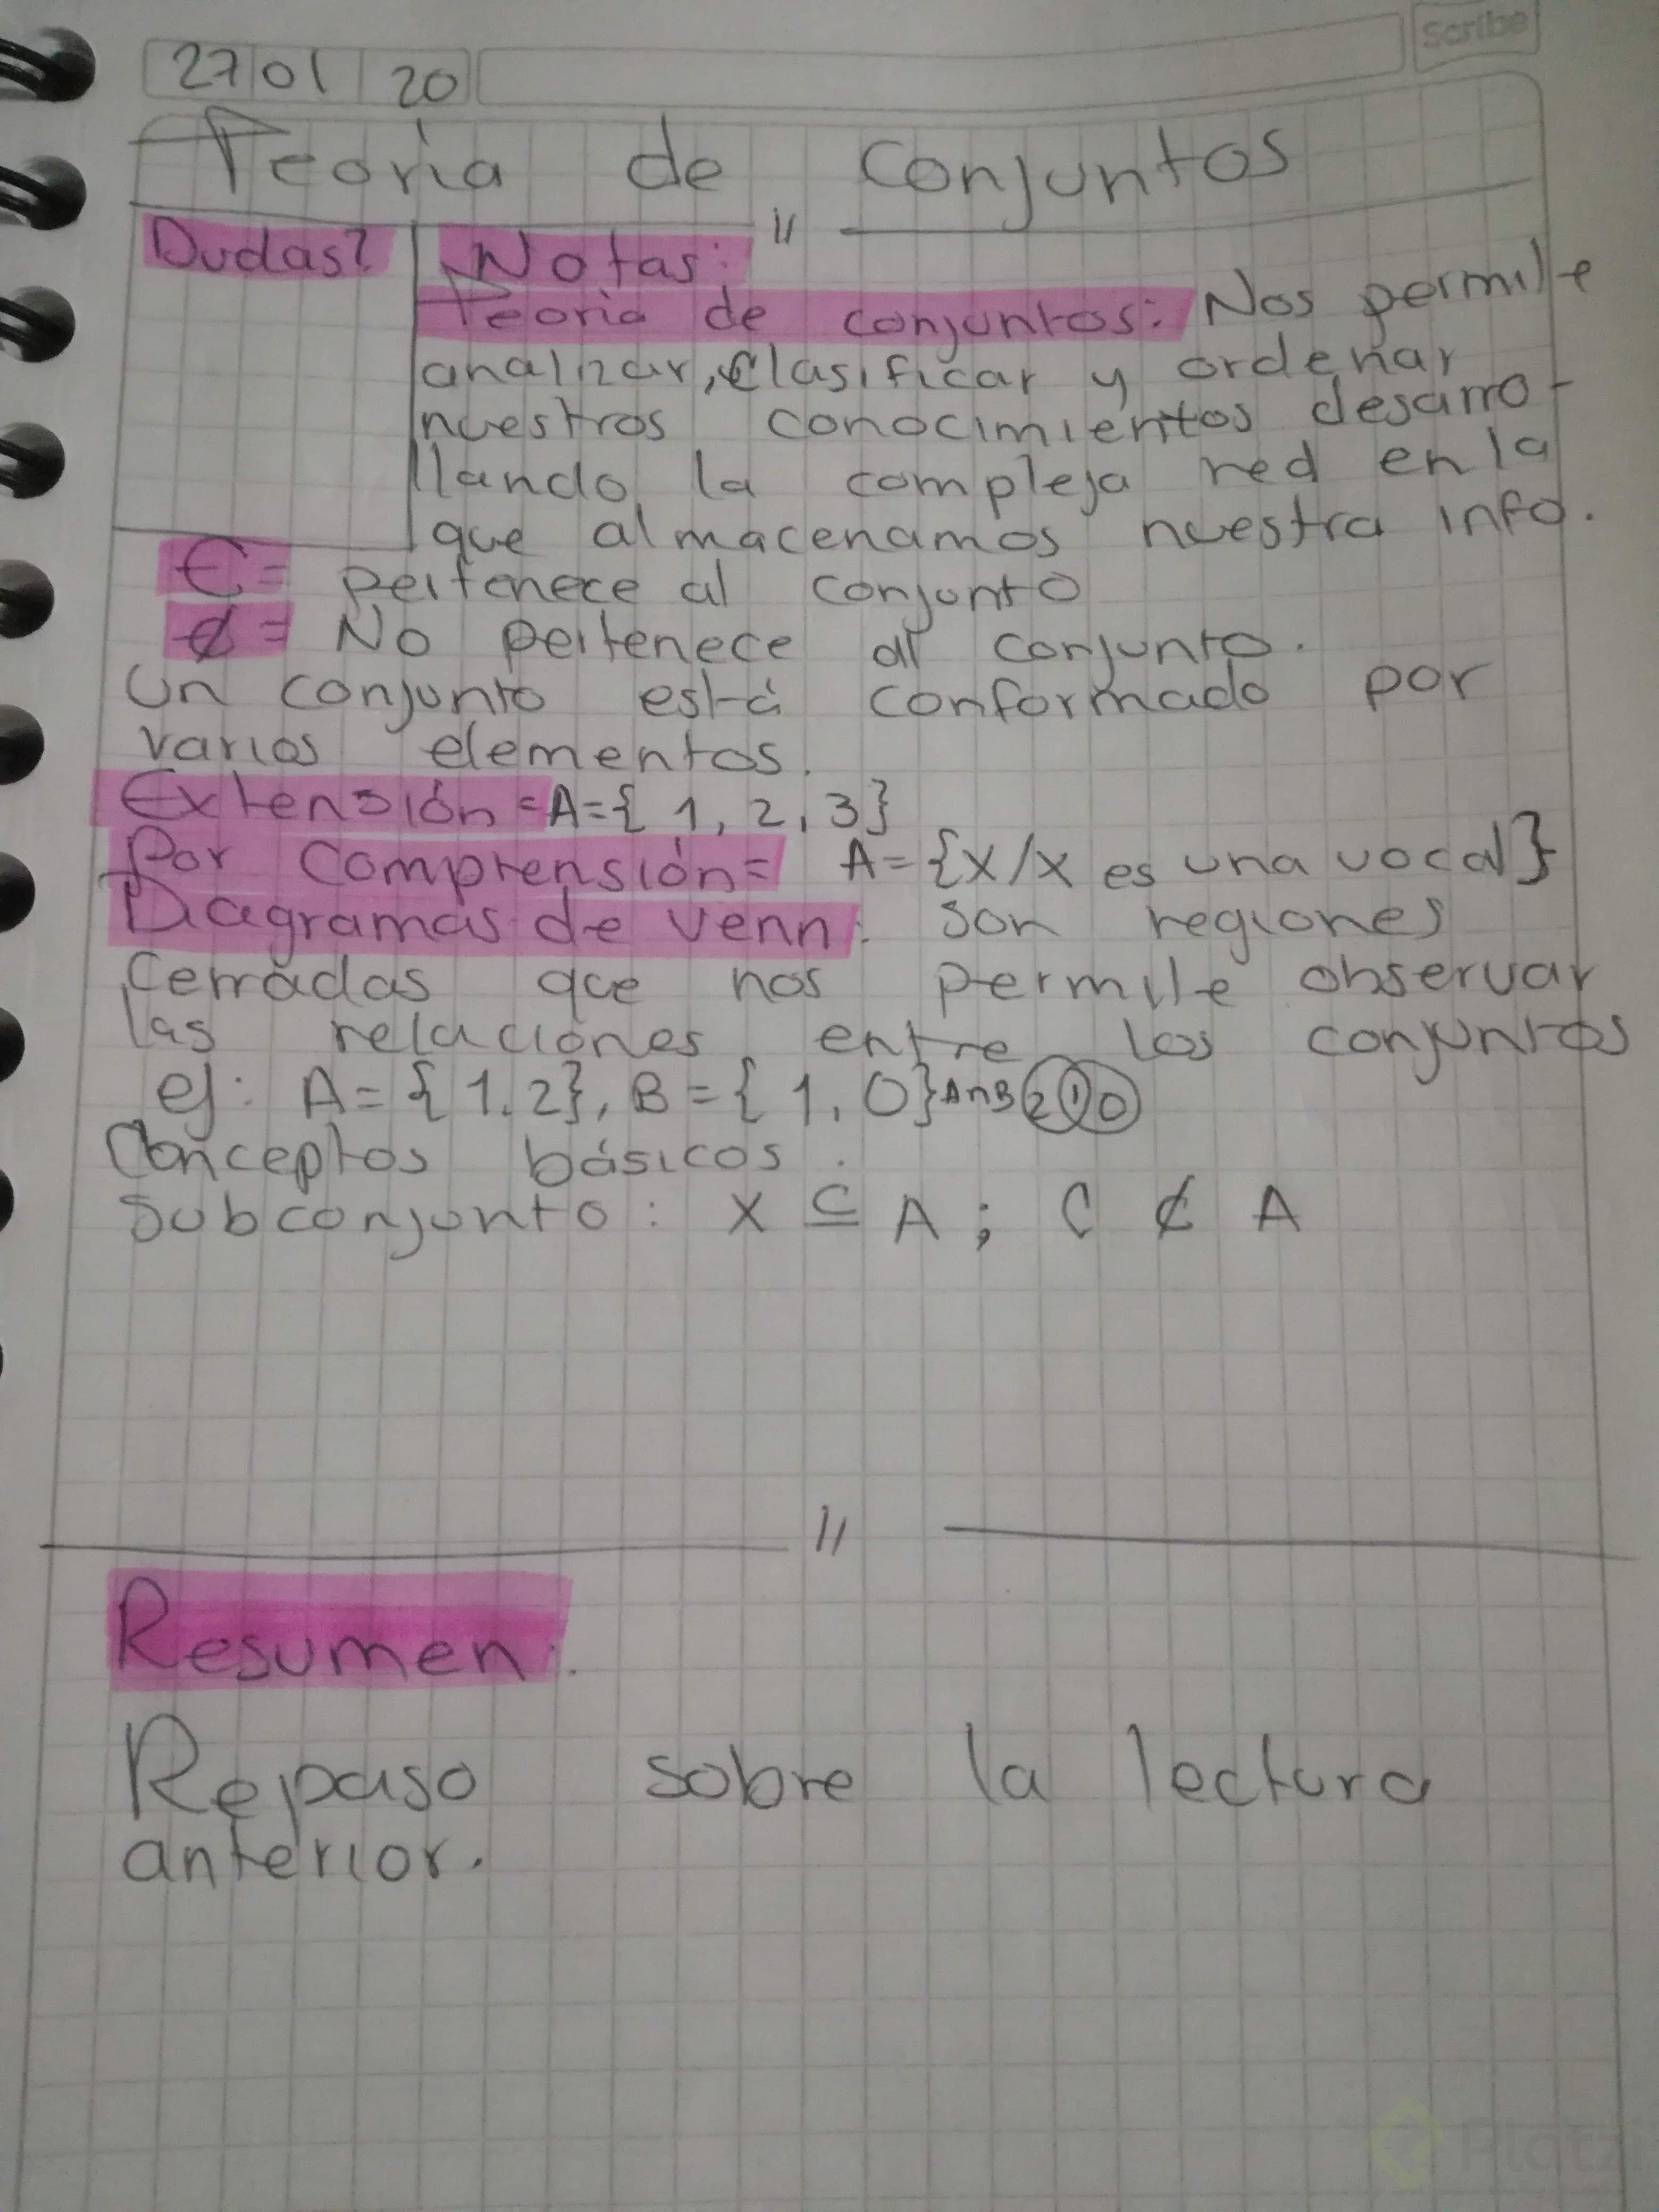 Scribe
27 01 20
Teoria de conjuntos
Dudas? Notas:
Teoria de conjuntos: Nos permite
analizar, clasificar y ordenar
nuestros conocimientos desarro-
llando la compleja red en la
que almacenamos nuestra info.
∈ = pertenece al conjunto
∉ = No pertenece al conjunto.
Un conjunto está conformado por
varios elementos.
Extensión = A={ 1, 2, 3}
Por Comprensión = A={x/x es una vocal}
Diagramas de Venn: son regiones
cerradas que nos permite observar
las relaciones entre los conjuntos
ej: A={1,2}, B={1,0} A∩B 2 1 0
Conceptos básicos:
Subconjunto: X ⊆ A ; C ⊄ A
Resumen:
Repaso sobre la lectura
anterior.
Platzi